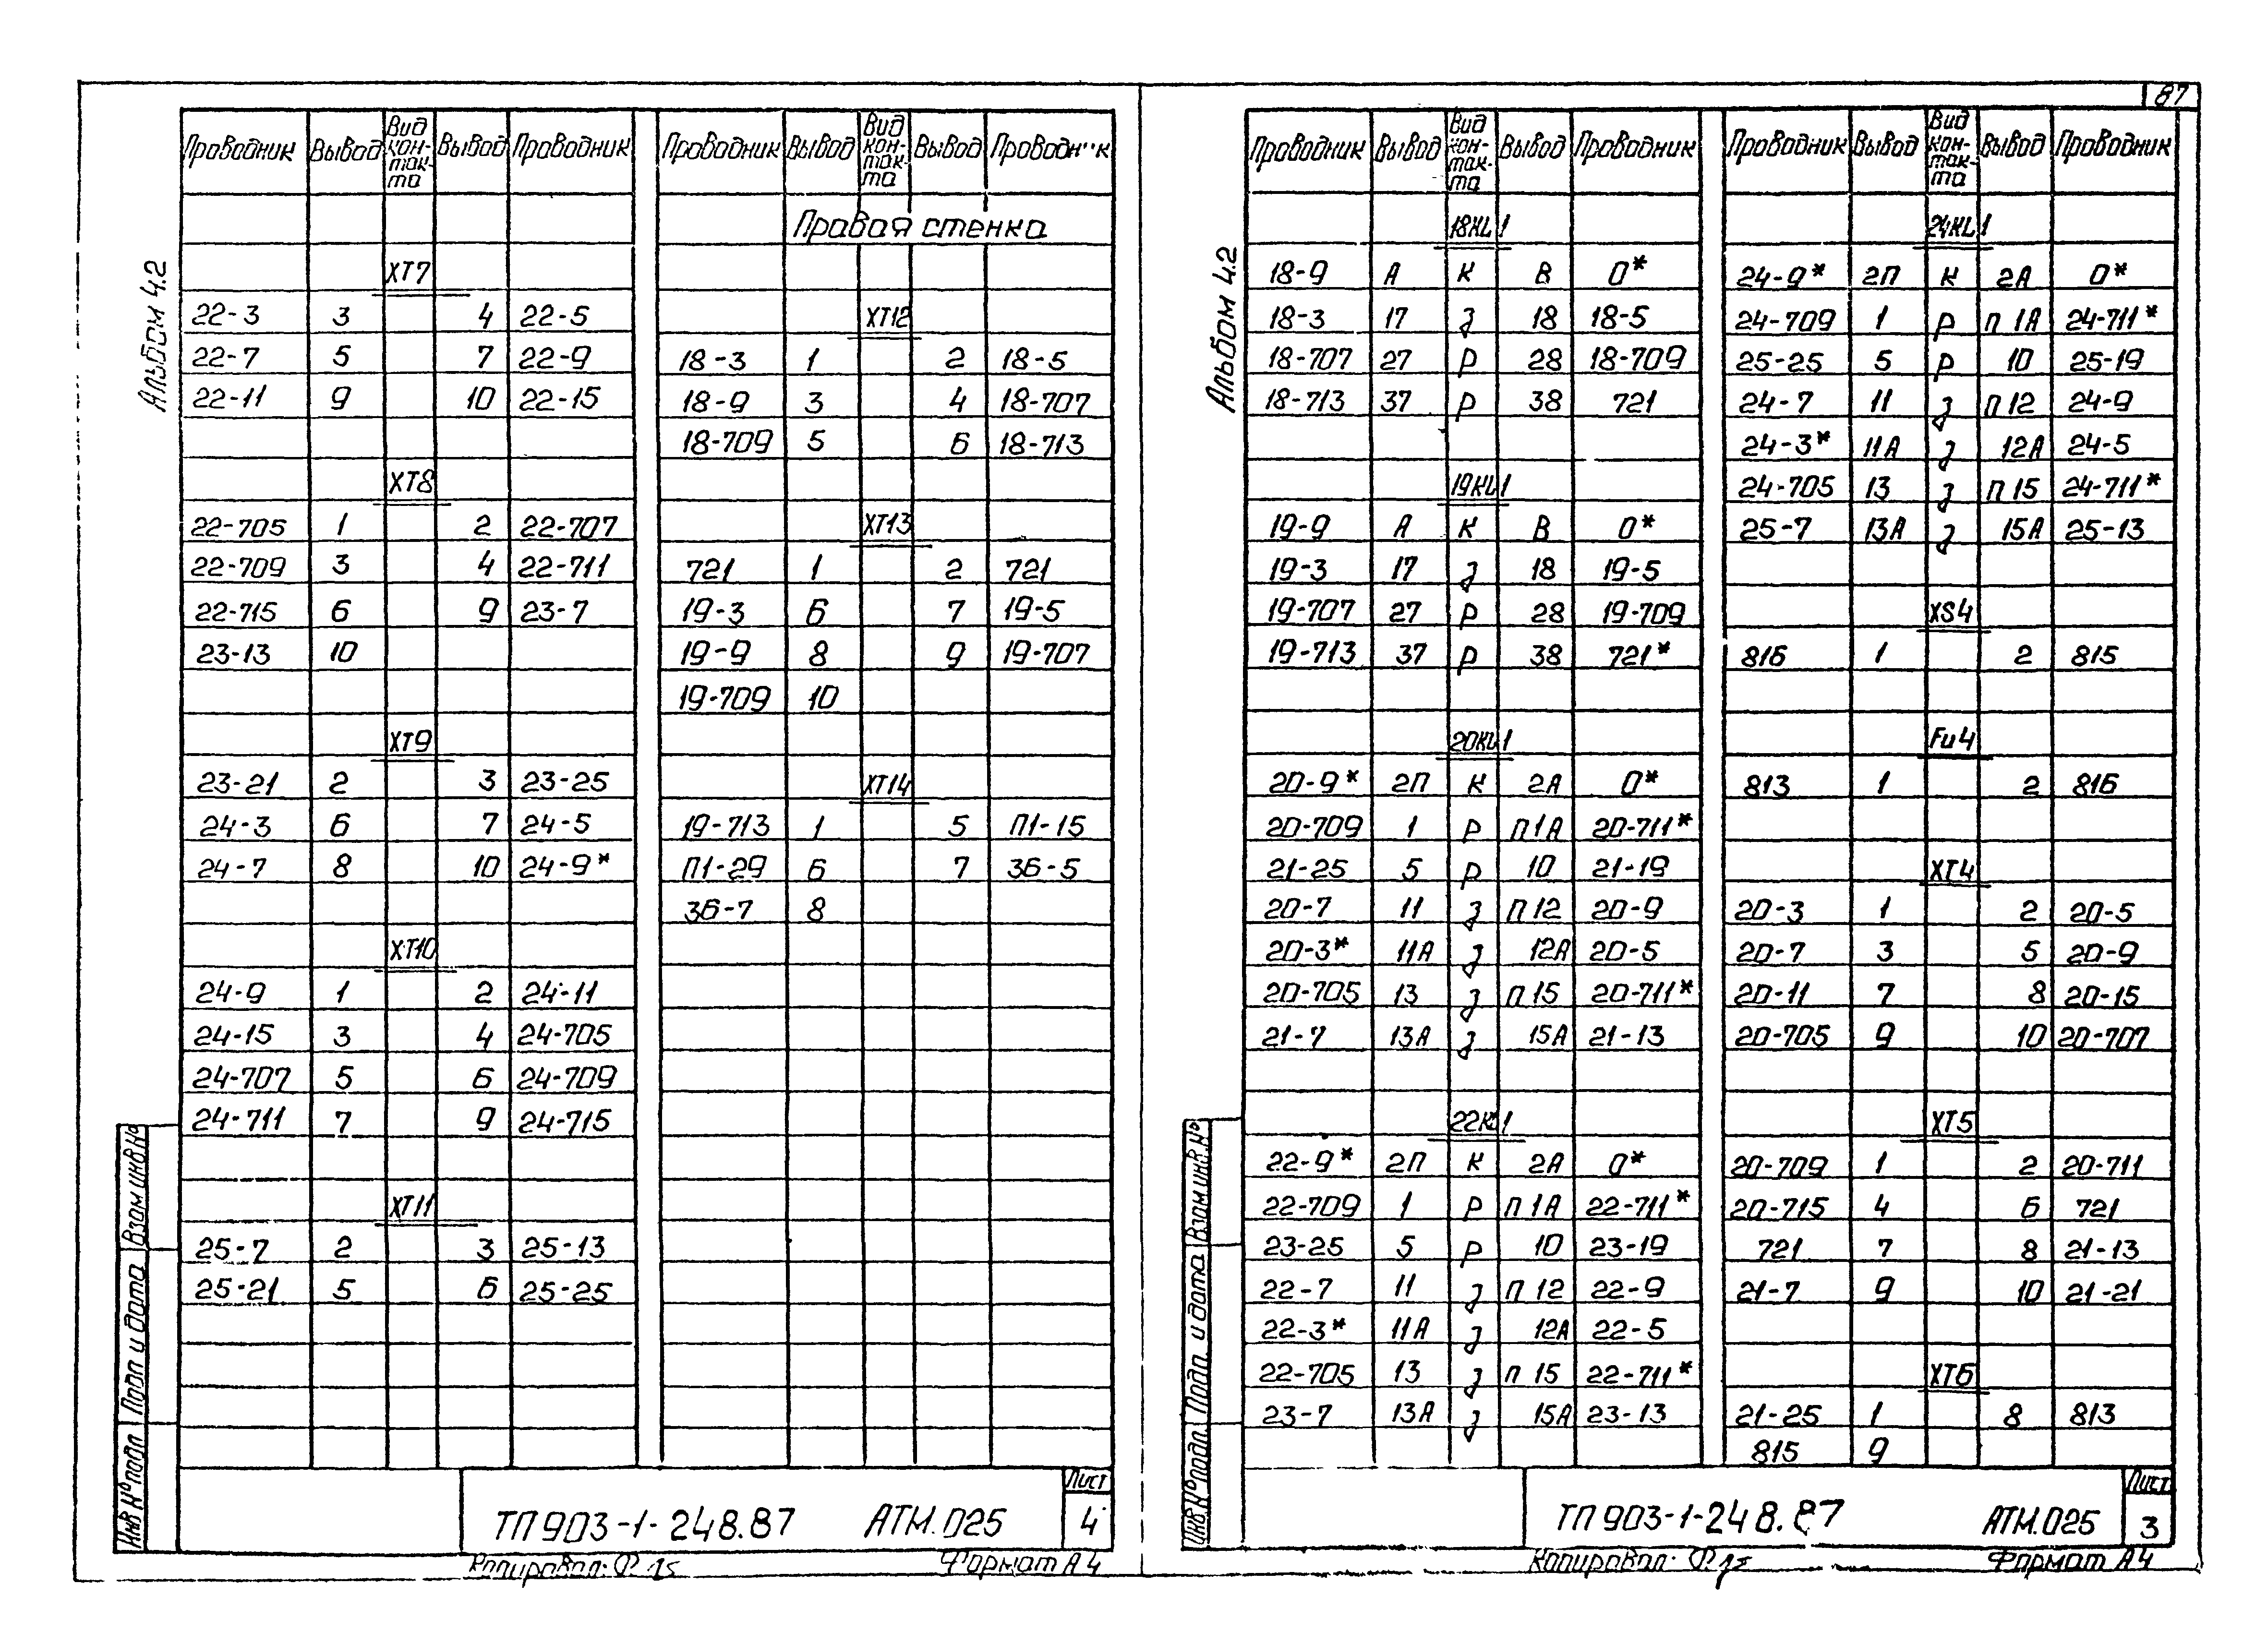 87
Альбом 4.2
Проводник Вывод Вид кон-так-та Вывод Проводник
XT7
22-3 3 4 22-5
22-7 5 7 22-9
22-11 9 10 22-15
XT8
22-705 1 2 22-707
22-709 3 4 22-711
22-715 6 9 23-7
23-13 10
XT9
23-21 2 3 23-25
24-3 6 7 24-5
24-7 8 10 24-9*
XT10
24-9 1 2 24-11
24-15 3 4 24-705
24-707 5 6 24-709
24-711 7 9 24-715
XT11
25-7 2 3 25-13
25-21 5 6 25-25
Проводник Вывод Вид кон-так-та Вывод Проводник
Правая стенка
XT12
18-3 1 2 18-5
18-9 3 4 18-707
18-709 5 6 18-713
XT13
721 1 2 721
19-3 6 7 19-5
19-9 8 9 19-707
19-709 10
XT14
19-713 1 5 П1-15
П1-29 6 7 36-5
36-7 8
Взам инв.№
Подп и дата
Инв.№подл
ТП 903-1-248.87 АТМ.025
Лист
4
Копировал:
Формат А4
Альбом 4.2
Проводник Вывод Вид кон-так-та Вывод Проводник
18KL1
18-9 А К В 0*
18-3 17 з 18 18-5
18-707 27 р 28 18-709
18-713 37 р 38 721
19KL1
19-9 А К В 0*
19-3 17 з 18 19-5
19-707 27 р 28 19-709
19-713 37 р 38 721*
20KL1
20-9* 2П К 2А 0*
20-709 1 р П1А 20-711*
21-25 5 р 10 21-19
20-7 11 з П12 20-9
20-3* 11А з 12А 20-5
20-705 13 з П15 20-711*
21-7 13А з 15А 21-13
22KL1
22-9* 2П К 2А 0*
22-709 1 р П1А 22-711*
23-25 5 р 10 23-19
22-7 11 з П12 22-9
22-3* 11А з 12А 22-5
22-705 13 з П15 22-711*
23-7 13А з 15А 23-13
Проводник Вывод Вид кон-так-та Вывод Проводник
24KL1
24-9* 2П К 2А 0*
24-709 1 р П1А 24-711*
25-25 5 р 10 25-19
24-7 11 з П12 24-9
24-3* 11А з 12А 24-5
24-705 13 з П15 24-711*
25-7 13А з 15А 25-13
XS4
816 1 2 815
Fu4
813 1 2 816
XT4
20-3 1 2 20-5
20-7 3 5 20-9
20-11 7 8 20-15
20-705 9 10 20-707
XT5
20-709 1 2 20-711
20-715 4 6 721
721 7 8 21-13
21-7 9 10 21-21
XT6
21-25 1 8 813
815 9
Взам инв.№
Подп. и дата
Инв.№подл.
ТП 903-1-248.87 АТМ.025
Лист
3
Копировал:
Формат А4